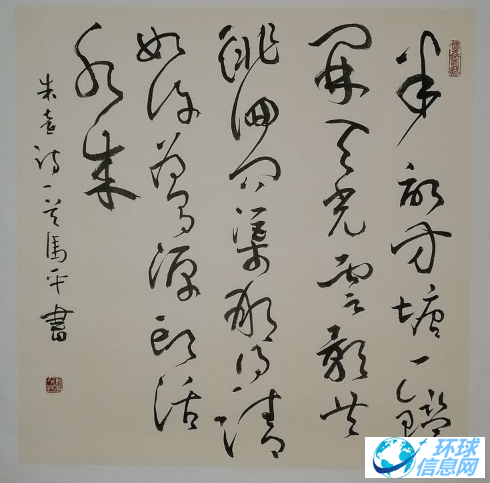 半畝方塘一鑑
開天光雲影共
徘徊问渠那得清
如许为有源头活
水来
朱熹诗一首馬平書
环球
信息网